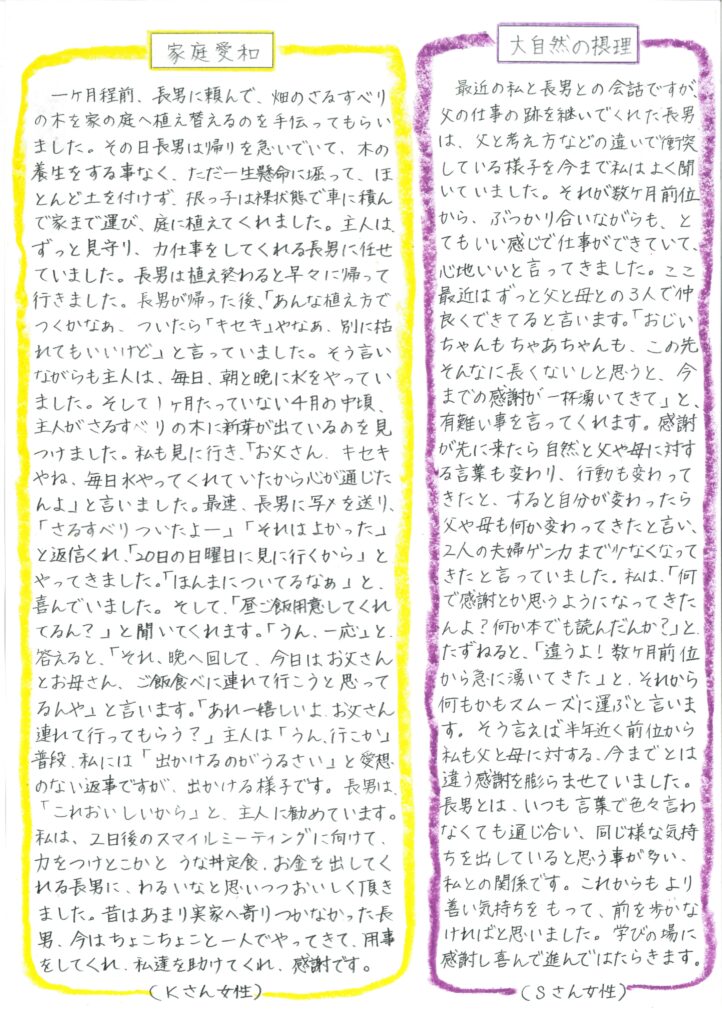 家庭愛和
一ケ月程前、長男に頼んで、畑のさるすべり
の木を家の庭へ植え替えるのを手伝ってもらい
ました。その日長男は帰りを急いでいて、木の
養生をする事なく、ただ一生懸命に堀って、ほ
とんど土を付けず、根っ子は裸状態で車に積ん
で家まで運び、庭に植えてくれました。主人は、
ずっと見守り、力仕事をしてくれる長男に任せ
ていました。長男は植え終わると早々に帰って
行きました。長男が帰った後、「あんな植え方で
つくかなぁ、ついたら「キセキ」やなぁ、別に枯
れてもいいけど」と言っていました。そう言い
ながらも主人は、毎日、朝と晩に水をやってい
ました。そして1ヶ月たっていない4月の中頃、
主人がさるすべりの木に新芽が出ているのを見
つけました。私も見に行き、「お父さん、キセキ
やね、毎日水やってくれていたから心が通じた
んよ」と言いました。最速、長男に写メを送り、
「さるすべりついたよー」「それはよかった」
と返信くれ、「20日の日曜日に見に行くから」と
やってきました。「ほんまについてるなぁ」と、
喜んでいました。そして、「昼ご飯用意してくれ
てるん?」と聞いてくれます。「うん、一応」と、
答えると、「それ、晩へ回して、今日はお父さん
とお母さん、ご飯食べに連れて行こうと思って
るんや」と言います。「あれー嬉しいよ、お父さん
連れて行ってもらう?」主人は「うん、行こか」
普段、私には「出かけるのがうるさい」と愛想
のない返事ですが、出かける様子です。長男は、
「これおいしいから」と、主人に勧めています。
私は、2日後のスマイルミーティングに向けて、
力をつけとこかと うな丼定食、お金を出してく
れる長男に、わるいなと思いつつおいしく頂き
ました。昔はあまり実家へ寄りつかなかった長
男、今はちょこちょこと一人でやってきて、用事
をしてくれ、私達を助けてくれ、感謝です。
(Kさん女性)
大自然の摂理
最近の私と長男との会話ですが、
父の仕事の跡を継いでくれた長男
は、父と考え方などの違いで衝突
している様子を今まで私はよく聞
いていました。それが数ケ月前位
から、ぶつかり合いながらも、と
てもいい感じで仕事ができていて、
心地いいと言ってきました。ここ
最近はずっと父と母との3人で仲
良くできてると言います。「おじい
ちゃんもちゃあちゃんも、この先
そんなに長くないしと思うと、今
までの感謝が一杯湧いてきて」と、
有難い事を言ってくれます。感謝
が先に来たら自然と父や母に対す
る言葉も変わり、行動も変わって
きたと、すると自分が変わったら
父や母も何か変わってきたと言い、
2人の夫婦ゲンカまで少なくなって
きたと言っていました。私は、「何
で感謝とか思うようになってきた
んよ?何か本でも読んだんか?」と、
たずねると、「違うよ!数ヶ月前位
から急に湧いてきた」と、それから
何もかもスムーズに運ぶと言いま
す。そう言えば半年近く前位から
私も父と母に対する、今までとは
違う感謝を膨らませていました。
長男とは、いつも言葉で色々言わ
なくても通じ合い、同じ様な気持
ちを出していると思う事が多い、
私との関係です。これからもより
善い気持ちをもって、前を歩かな
ければと思いました。学びの場に
感謝し喜んで進んではたらきます。
(Sさん女性)